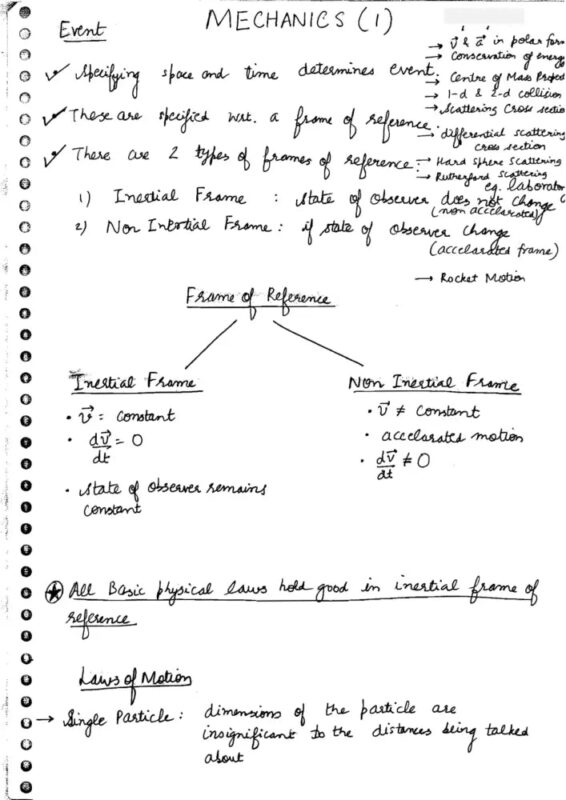 MECHANICS (1)
Event
→ v⃗ & a⃗ in polar form
→ Conservation of energy
→ Centre of Mass
→ 1-d & 2-d collision
→ Scattering Cross section
→ differential scattering
cross section
→ Hard sphere Scattering
→ Rutherford Scattering
✓ Specifying space and time determines event.
✓ These are specified wrt. a frame of reference.
✓ There are 2 types of frames of reference:
eg. laborator
1) Inertial Frame : State of observer does not change
(non accelarated)
2) Non Inertial Frame : if state of observer change
(accelarated frame)
→ Rocket Motion
Frame of Reference
Inertial Frame
• v⃗ = constant
• dv⃗/dt = 0
• State of observer remains
constant
Non Inertial Frame
• v⃗ ≠ constant
• accelarated motion
• dv⃗/dt ≠ 0
★ All Basic physical laws hold good in inertial frame of
reference
Laws of Motion
→ Single Particle : dimensions of the particle are
insignificant to the distances being talked
about